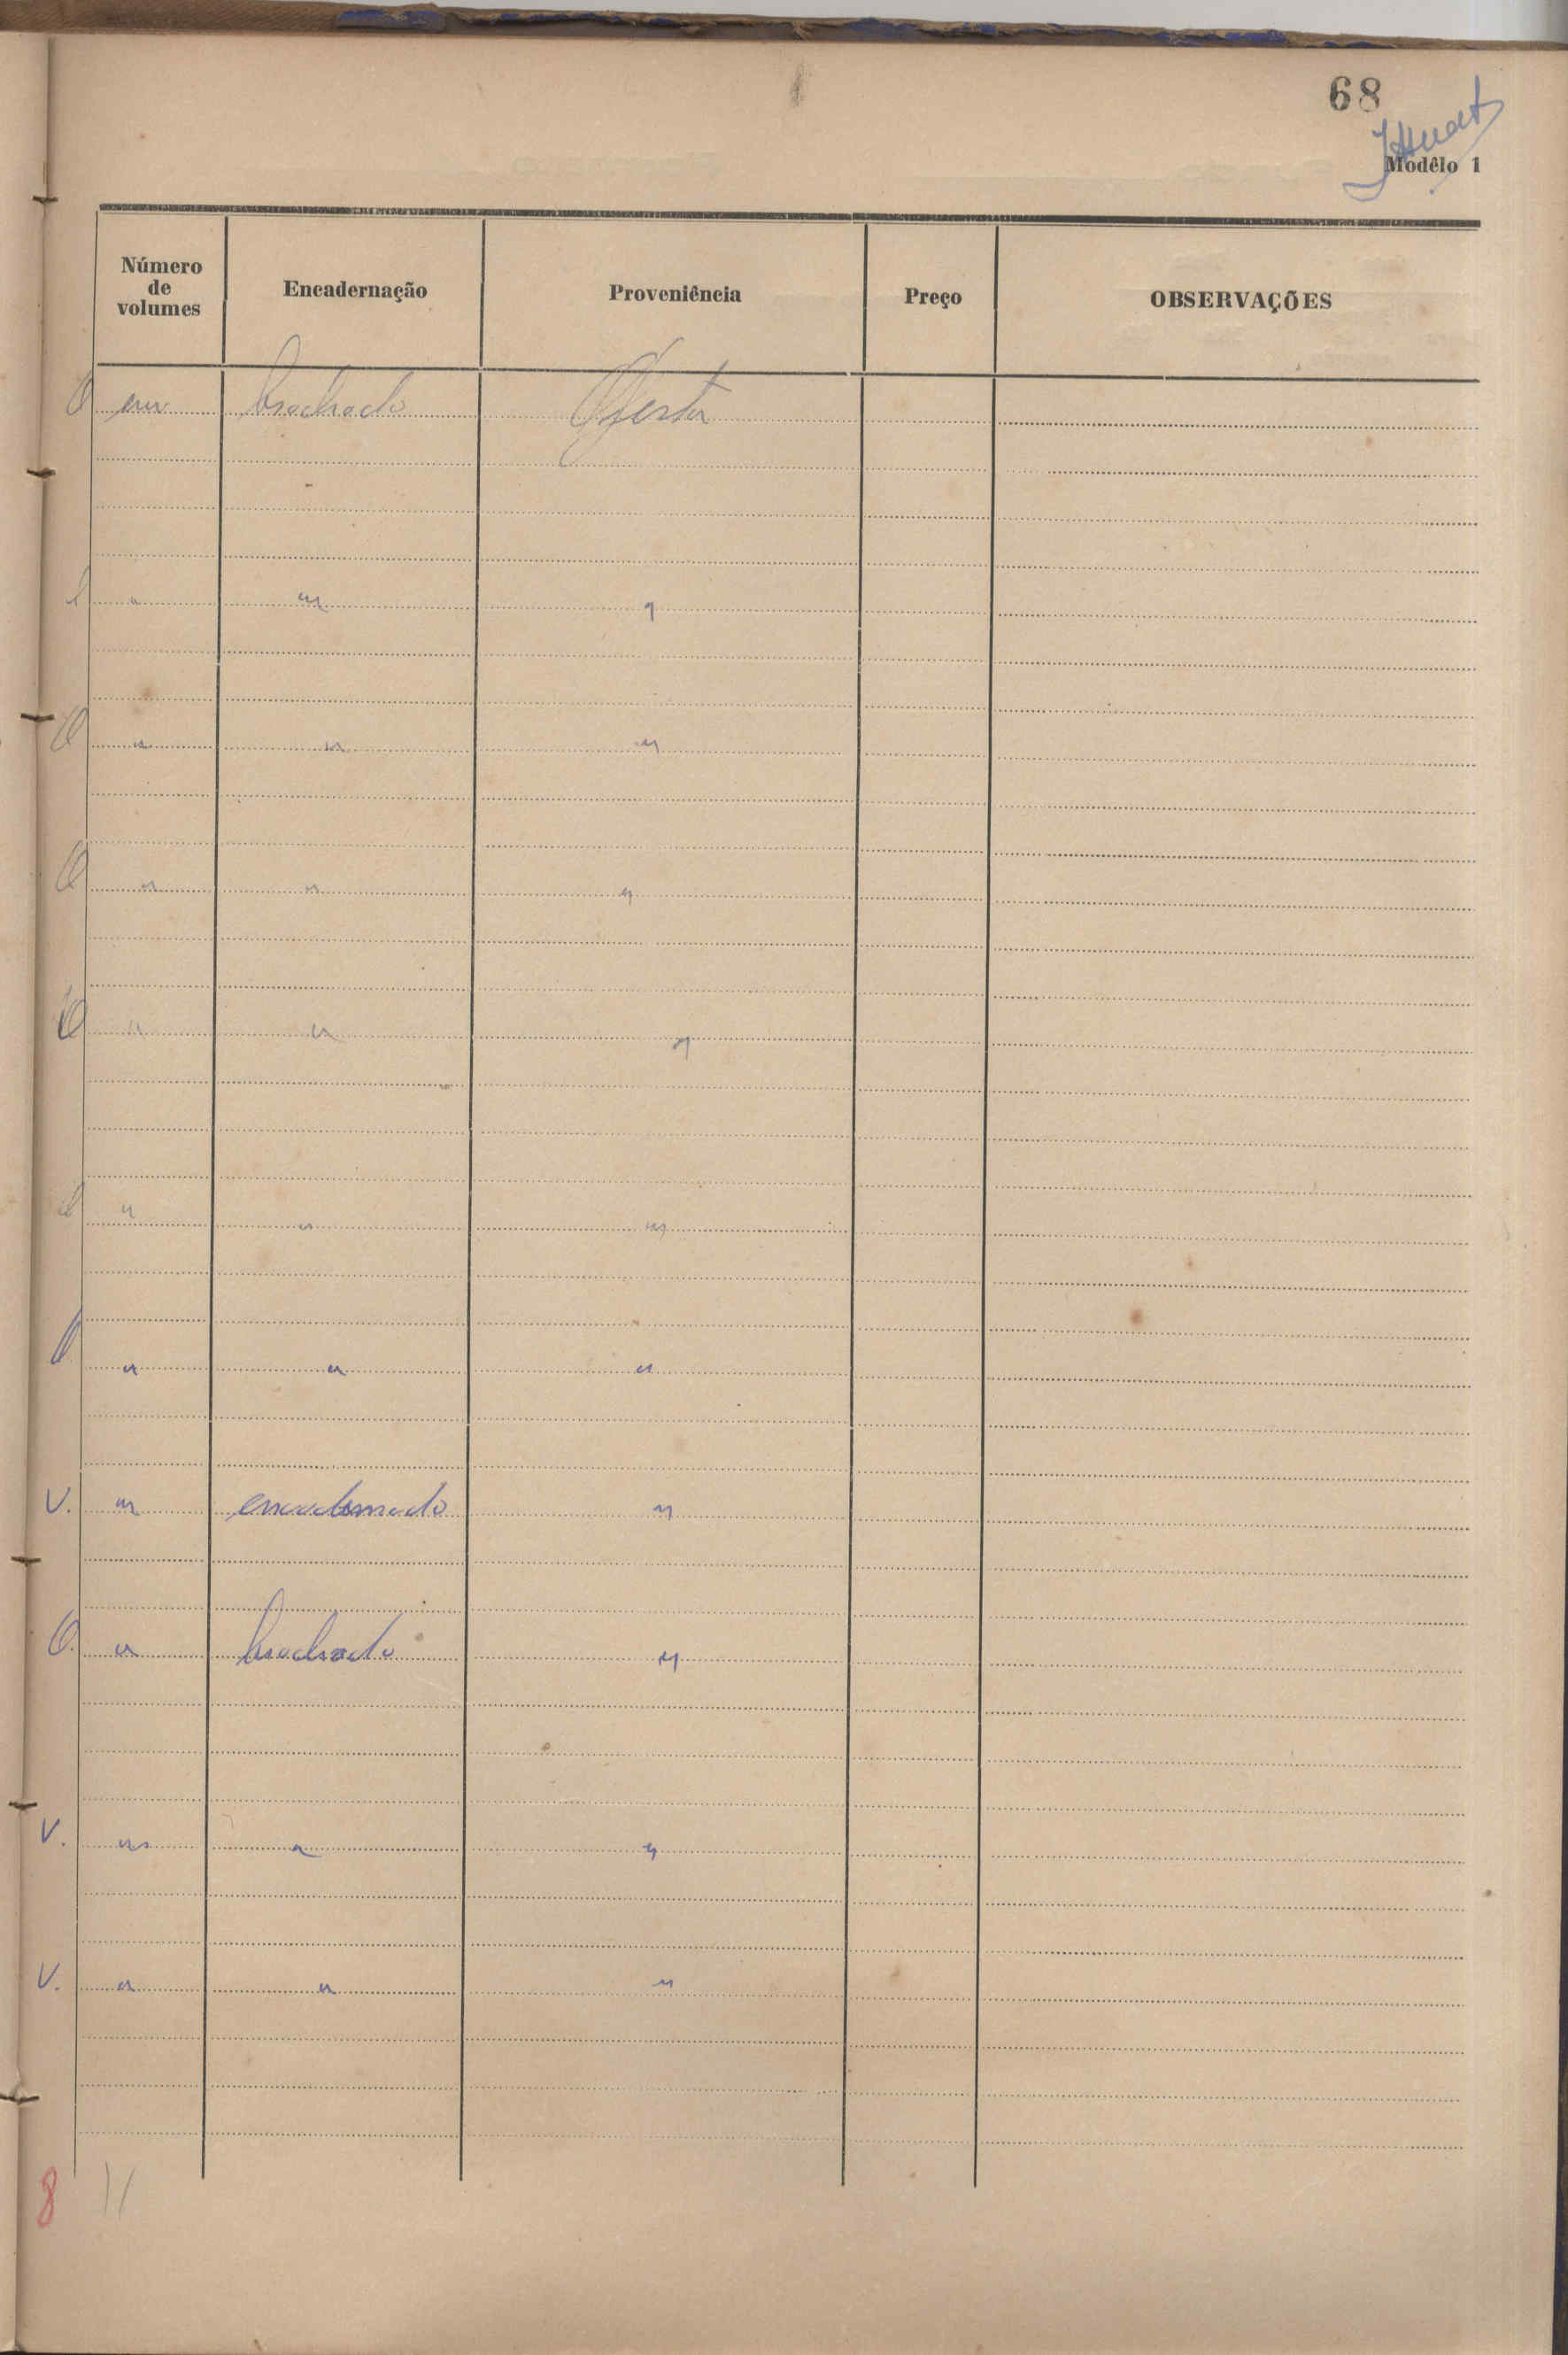 68
Modêlo 1
Número de volumes Encadernação Proveniência Preço OBSERVAÇÕES
O um brochado Oferta
" " "
O " " "
O " " "
O " " "
" " "
" " "
V. " encadernado "
O. " brochado "
V. " " "
V. " " "
8 11